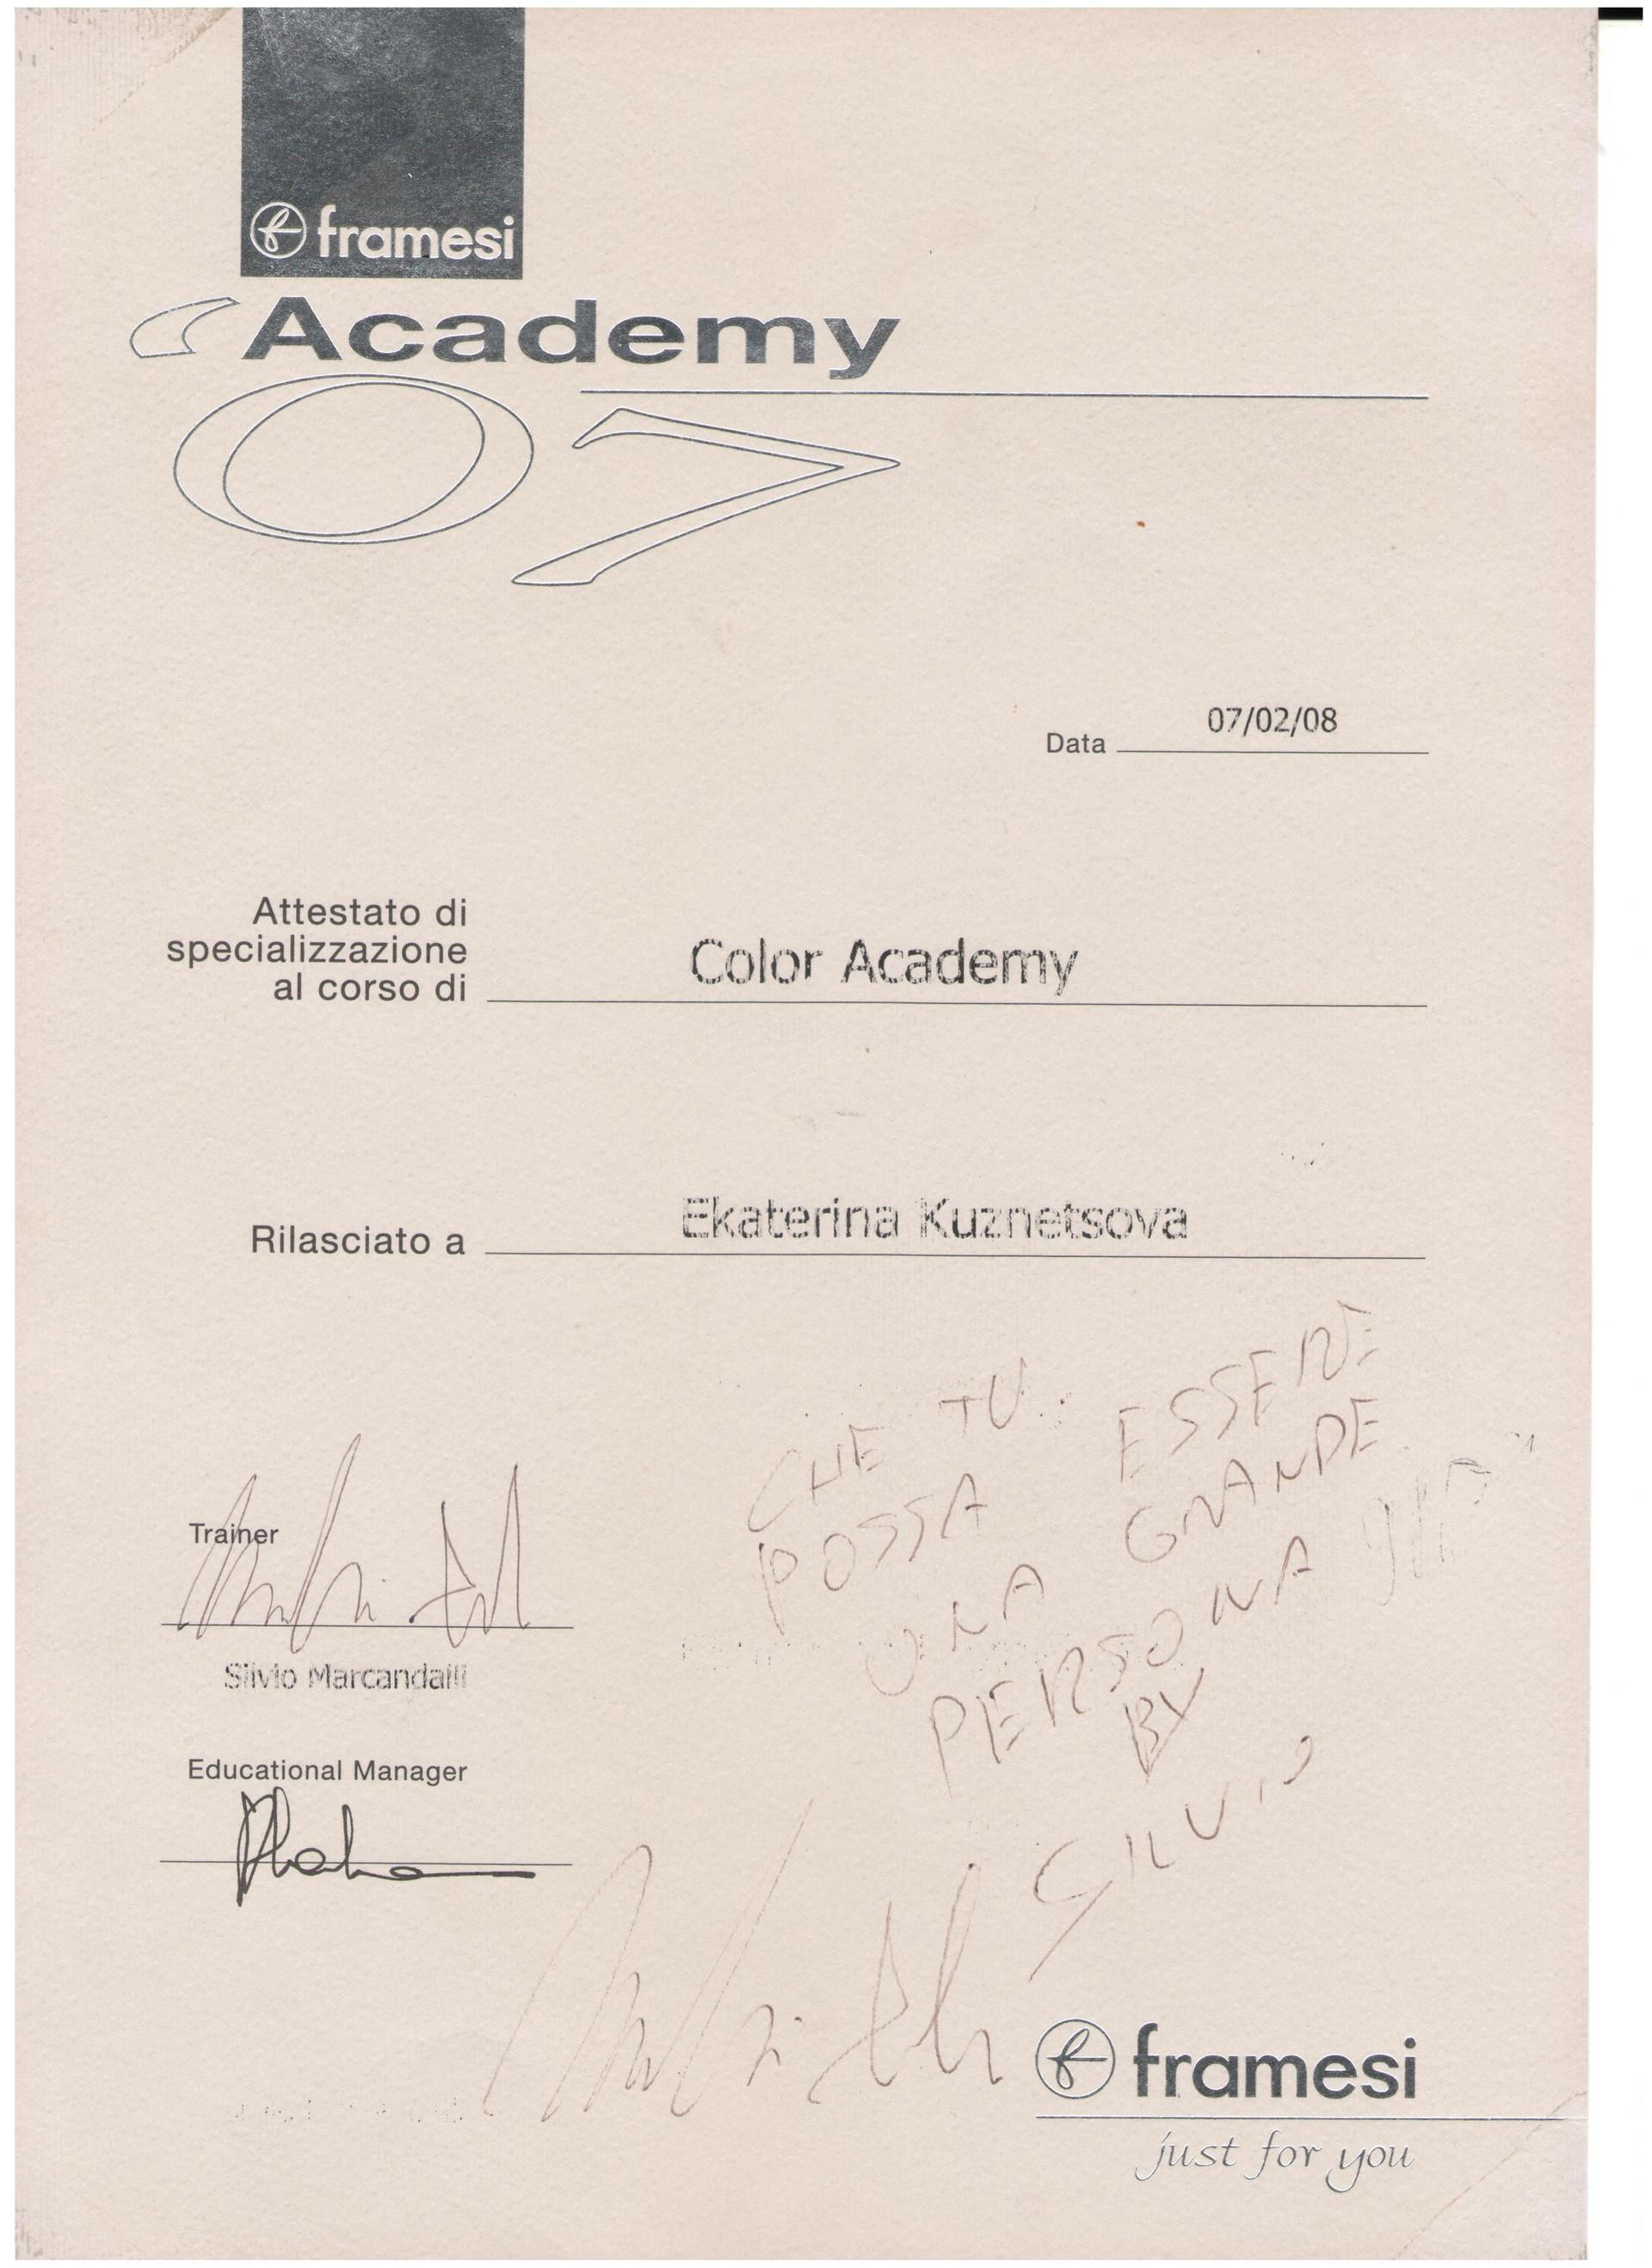 framesi
'Academy
07
Data 07/02/08
Attestato di
specializzazione
al corso di Color Academy
Rilasciato a Ekaterina Kuznetsova
CHE TU
POSSA ESSERE
UNA GRANDE
PERSONA
BY
SILVIO
Trainer
Silvio Marcandalli
Educational Manager
framesi
just for you